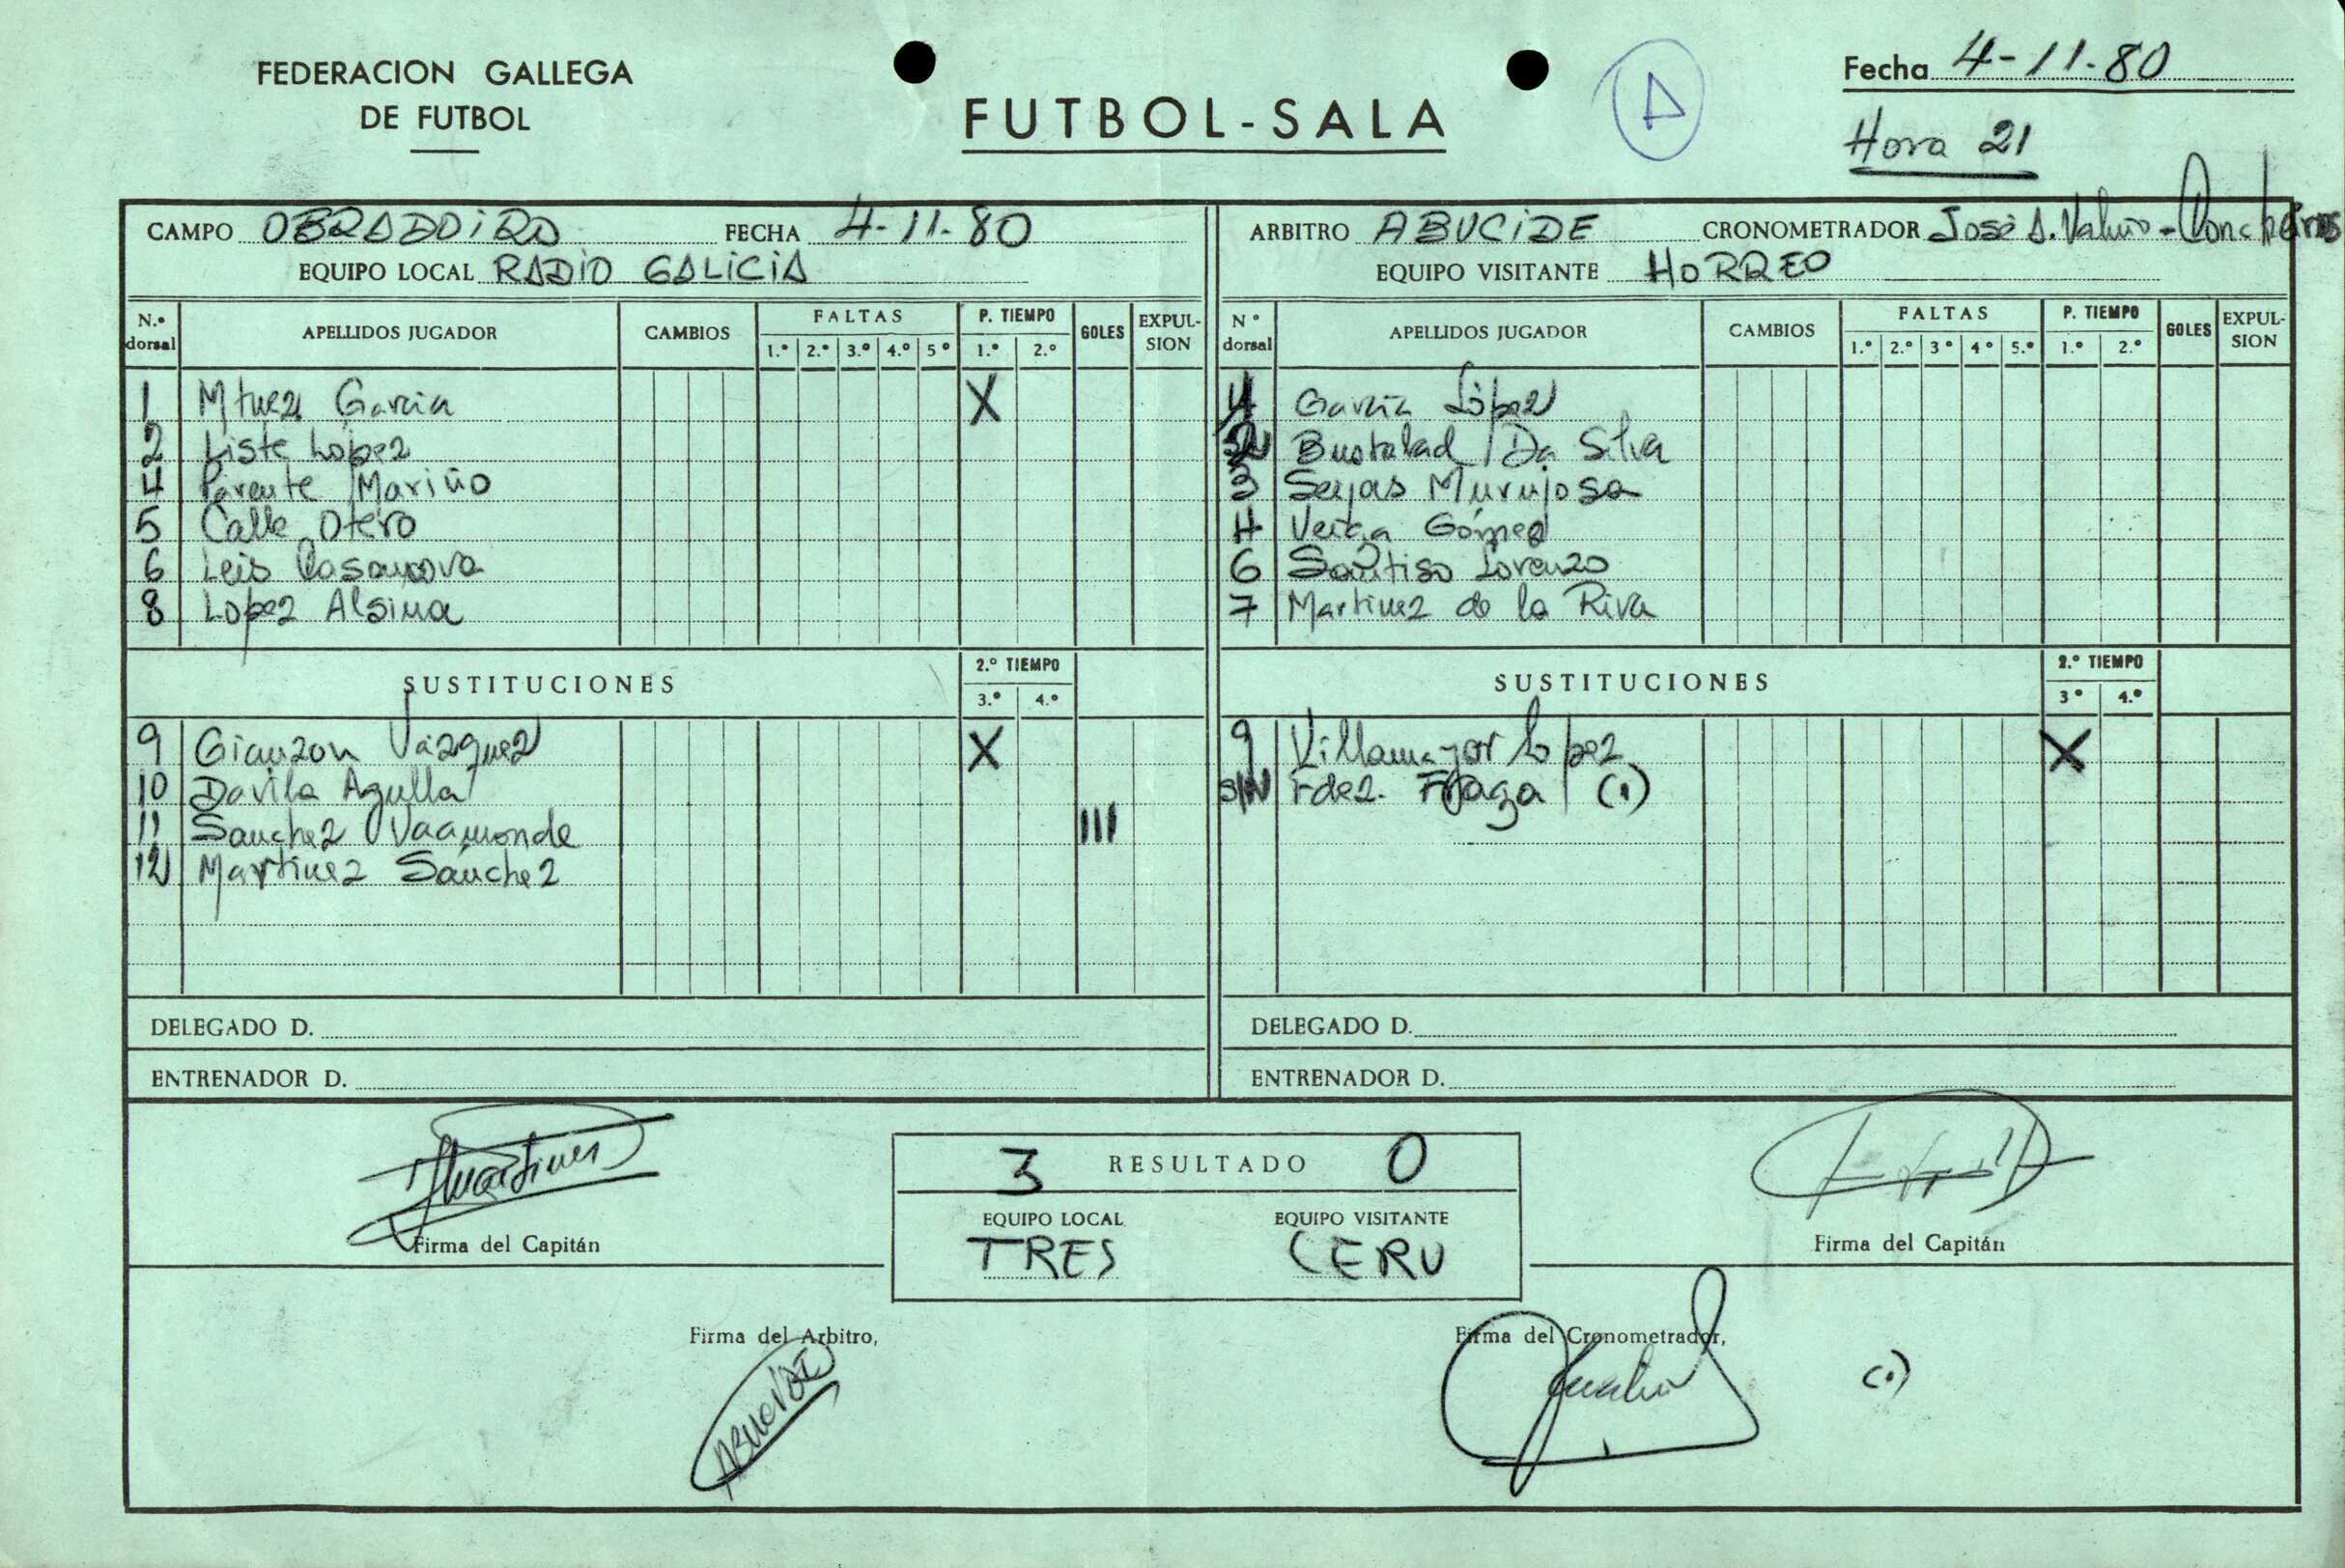 FEDERACION GALLEGA
DE FUTBOL
FUTBOL-SALA
A
Fecha 4-11-80
Hora 21
CAMPO OBRADOIRO FECHA 4-11-80
EQUIPO LOCAL RADIO GALICIA
N.º dorsal APELLIDOS JUGADOR CAMBIOS FALTAS 1.º 2.º 3.º 4.º 5º P. TIEMPO 1.º 2.º GOLES EXPULSION
1 Mtnez Garcia X
2 Liste Lopez
4 Parente Mariño
5 Calle Otero
6 Leis Casanova
8 Lopez Alsina
SUSTITUCIONES 2.º TIEMPO 3.º 4.º
9 Gianzon Vázquez X
10 Davila Agulla
11 Sanchez Vaamonde III
12 Martinez Sánchez
DELEGADO D.
ENTRENADOR D.
ARBITRO ABUCIDE CRONOMETRADOR José A. Concheiros
EQUIPO VISITANTE HORREO
Nº dorsal APELLIDOS JUGADOR CAMBIOS FALTAS 1.º 2.º 3º 4º 5.º P. TIEMPO 1.º 2.º GOLES EXPULSION
García López
2 Bustelad Da Silva
3 Seijas Murujosa
4 Veiga Gómez
6 Santiso Lorenzo
7 Martinez de la Riva
SUSTITUCIONES 2.º TIEMPO 3º 4.º
9 Villamayor Lopez X
S/N Fdez. Fraga (1)
DELEGADO D.
ENTRENADOR D.
Firma del Capitán
3 RESULTADO 0
EQUIPO LOCAL EQUIPO VISITANTE
TRES CERO
Firma del Capitán
Firma del Arbitro,
Abucide
Firma del Cronometrador,
(1)